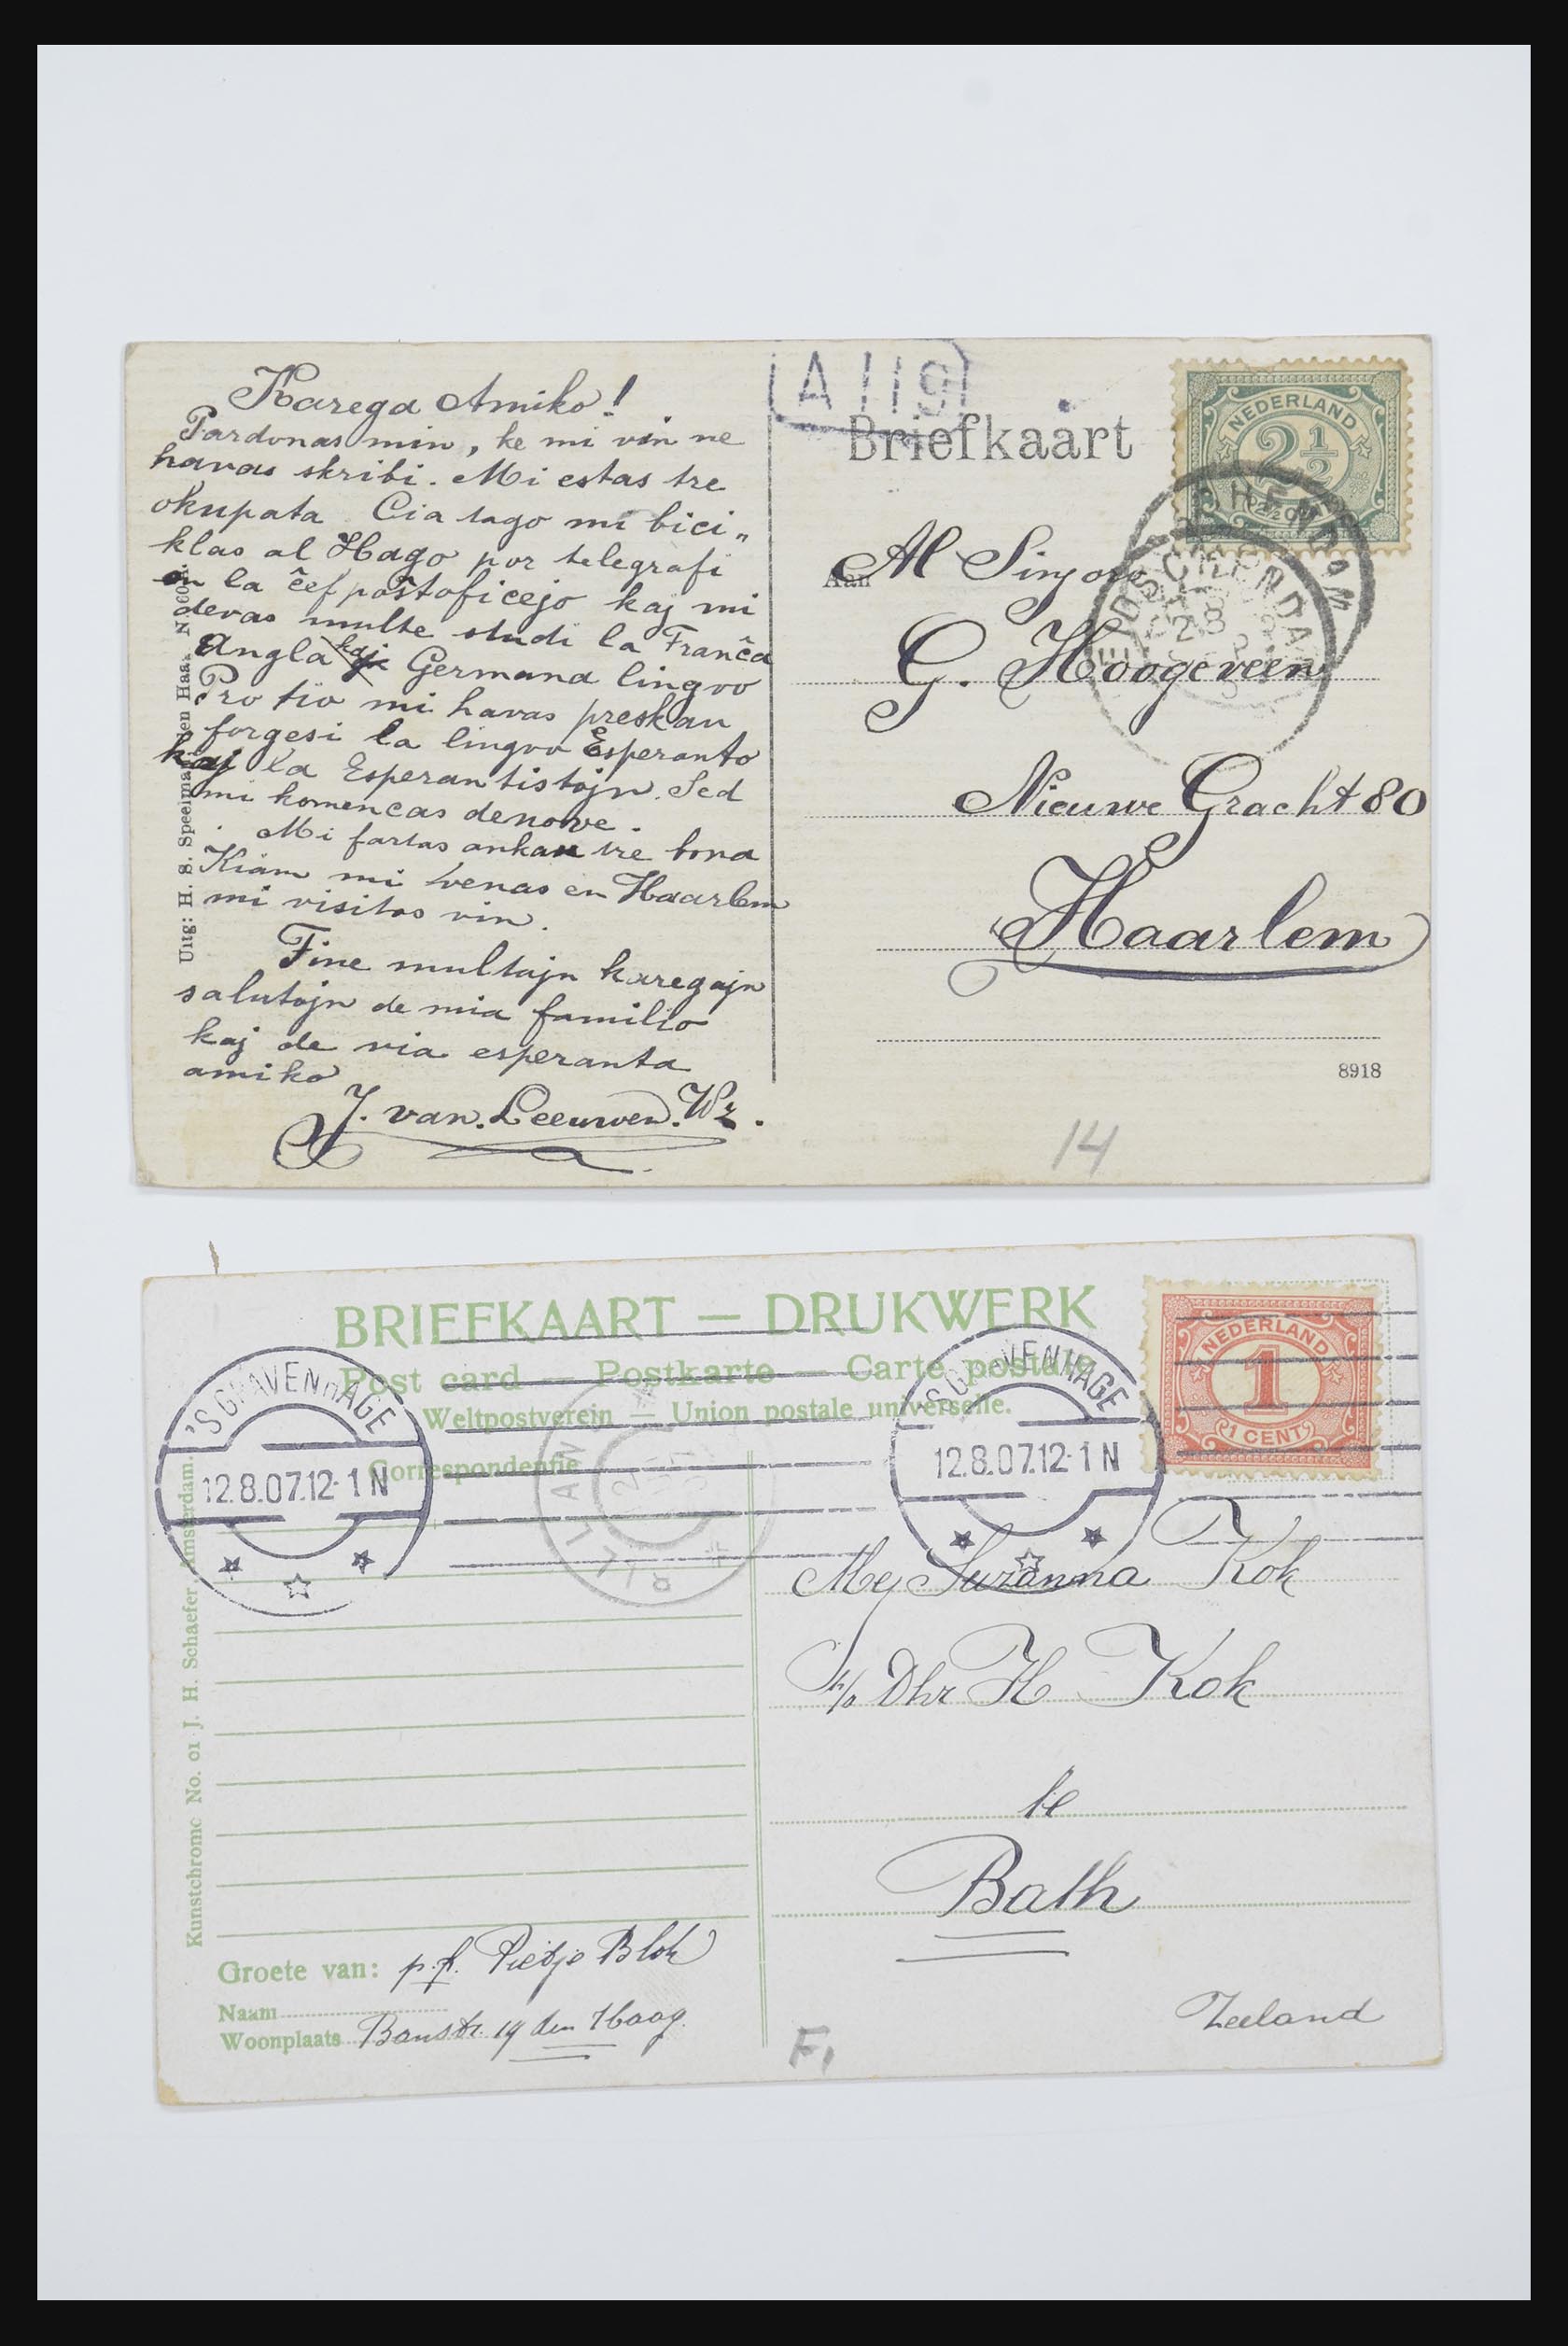 Karega Amiko!
Pardonas min, ke mi vin ne
havas skribi. Mi estas tre
okupata Cia tago mi bici„
klas al Hago por telegrafi
en la ĉef poŝtoficejo kaj mi
devas multe studi la Franĉa
Angla kaj Germana lingvo
Pro tio mi havas preskau
forgesi la lingvo Esperanto
kaj la Esperantistojn. Sed
mi komencas denove.
Mi fartas ankau tre bona
Kiam mi venas en Haarlem
mi visitos vin.
Fine multajn karegajn
salutojn de mia familio
kaj de via esperanta
amiko
J. van Leeuwen. Wz.
Uitg: H. S. Speelman, den Haag
A 119
Briefkaart
NEDERLAND
2½
Aan
Al Sinjoro
G. Hoogeveen
Nieuwe Gracht 80
Haarlem
8918
14
BRIEFKAART — DRUKWERK
Post card — Postkarte — Carte postale
Weltpostverein — Union postale universelle.
Correspondentie
'S GRAVENHAGE
12.8.07.12-1 N
'S GRAVENHAGE
12.8.07.12-1 N
NEDERLAND
1
1 CENT
RILLAND
Mej Suzanna Kok
p/a Dhr H Kok
te
Bath
Zeeland
Kunstchromo No. 01 J. H. Schaefer Amsterdam.
Groete van: p.f. Pietje Blok
Naam
Woonplaats Banstr. 19 den Haag.
F1